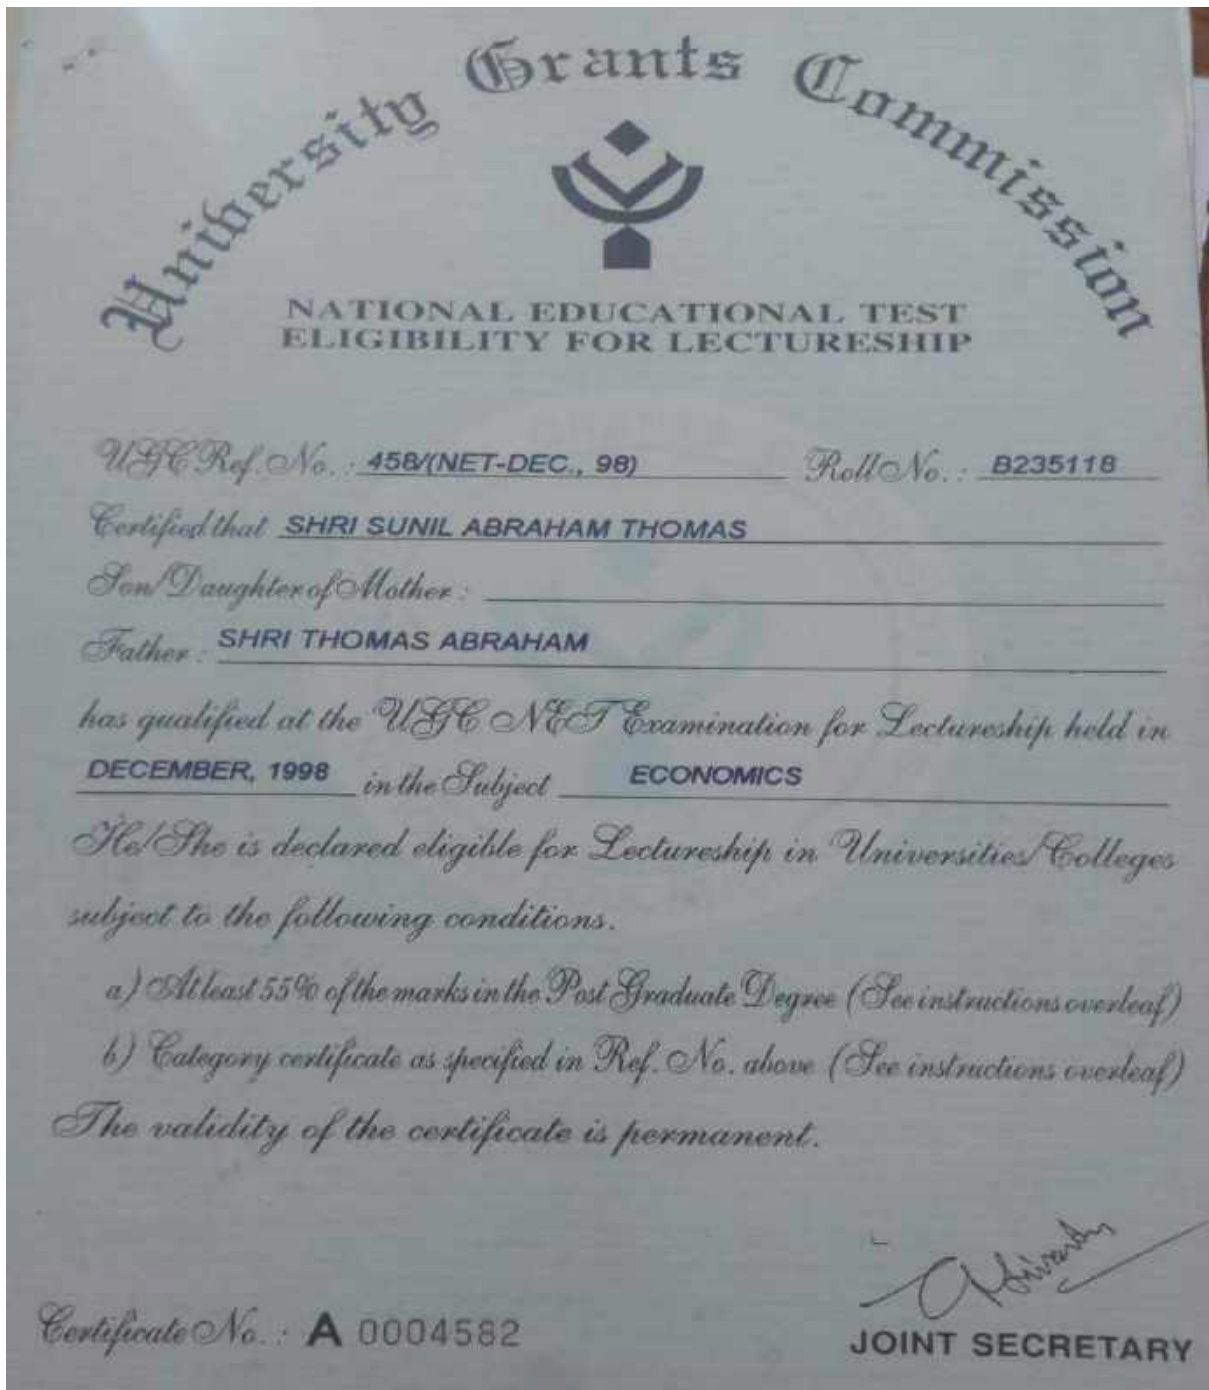 University Grants Commission
NATIONAL EDUCATIONAL TEST
ELIGIBILITY FOR LECTURESHIP
UGC Ref. No. : 458/(NET-DEC., 98) Roll No. : B235118
Certified that SHRI SUNIL ABRAHAM THOMAS
Son/Daughter of Mother :
Father : SHRI THOMAS ABRAHAM
has qualified at the UGC NET Examination for Lectureship held in
DECEMBER, 1998 in the Subject ECONOMICS
He/She is declared eligible for Lectureship in Universities/Colleges
subject to the following conditions.
a) At least 55% of the marks in the Post Graduate Degree (See instructions overleaf)
b) Category certificate as specified in Ref. No. above (See instructions overleaf)
The validity of the certificate is permanent.
Certificate No. : A 0004582
JOINT SECRETARY